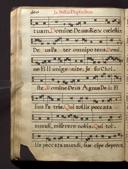 tuam. Domine Deus Rex cœlestis
Deus Pater omnipotens. Domi
ne Fili unigenite, Jesu Chri
Domine Deus Agnus Dei Fi
lius Patris. Qui tollis peccata
mundi, miserere nobis. Qui tollis
peccata mundi, suscipe depreca